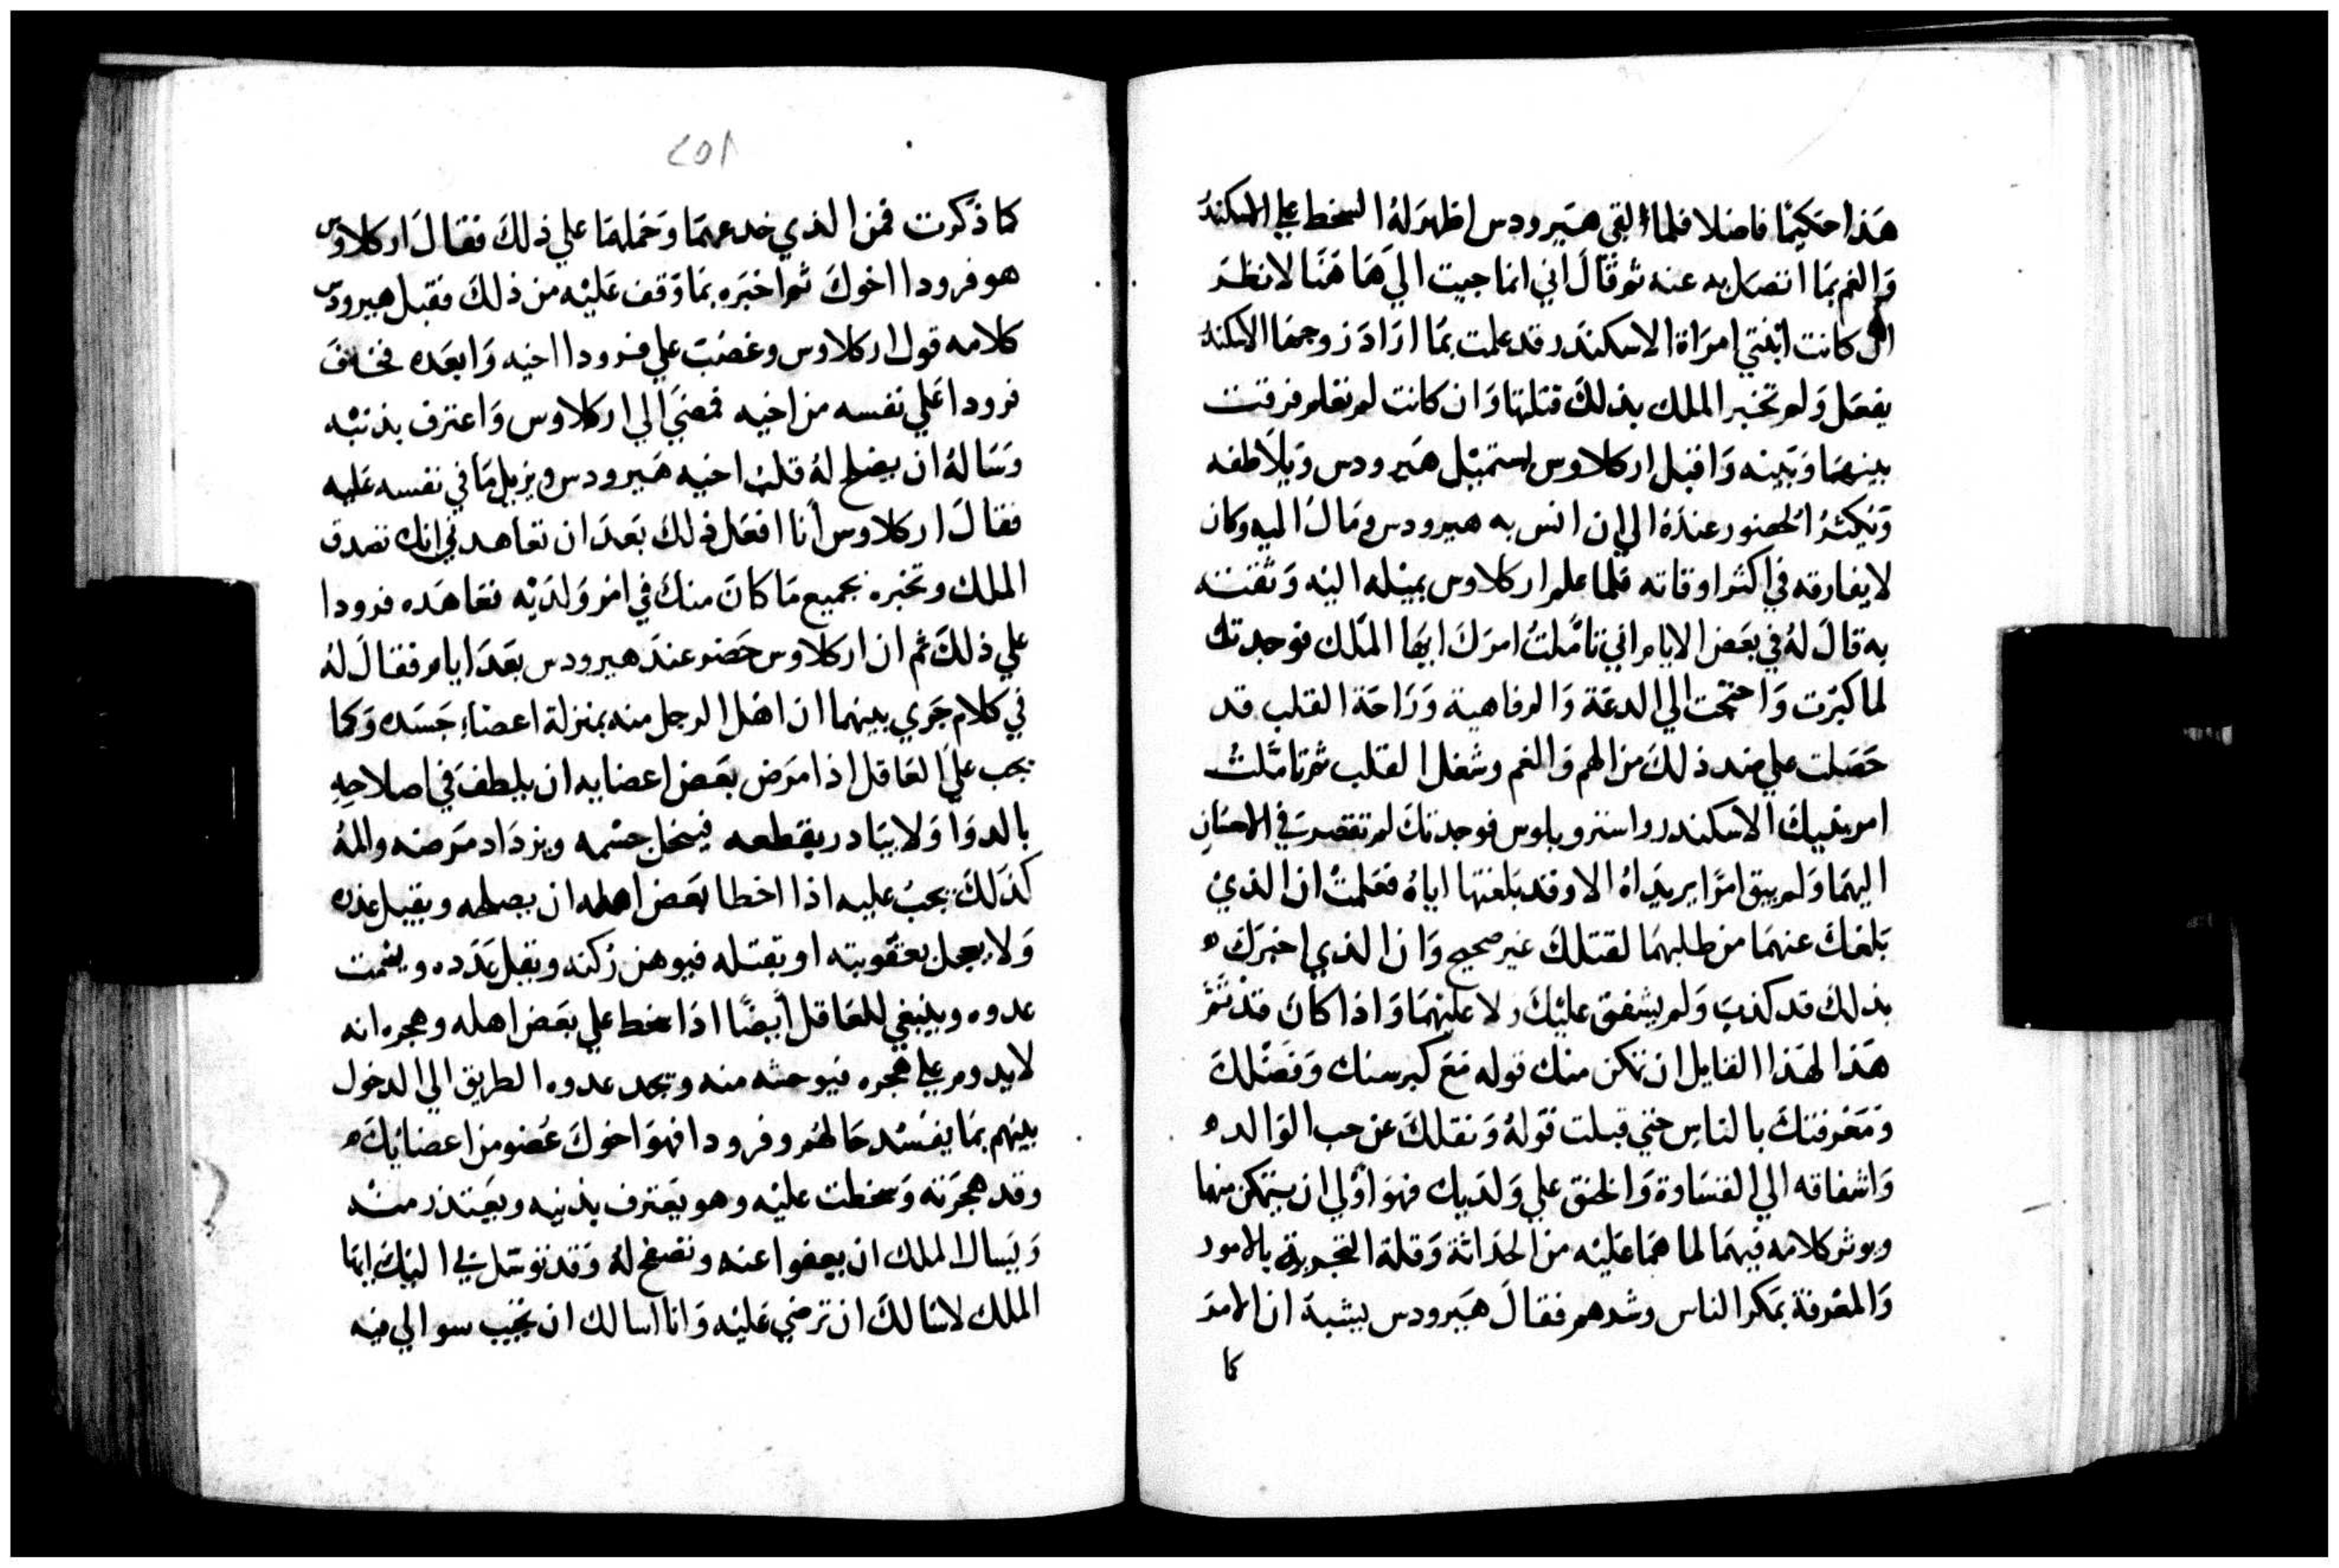 هَذا حَكيمًا فاضلا فلما لقي هَيرودس اظهرَ لهُ السخط علي الاسكندر
وَالغم بمَا اتصَل به عنه ثم قالَ اني انما جيت الي هَاهُنَا لانظر
ان كانت ابنتي امرَاة الاسكندَر قد علمت بمَا ارَادَ زوجهَا الاسكندر
يفعَل وَلم تخبر الملك بذلكَ قتلتها وَان كانت لم تعلم فرقت
بينهمَا وَبَينه وَاقبل اركلاوس يستميْل هَيرودس وَيلاطفه
وَيكثرُ الحضور عندَهُ الي ان انس به هيرودس وَمَالَ اليه وَكان
لا يفارقه في اكثر اوقاته فلما علم اركلاوس بميْله اليْه وَثقته
به قالَ لهُ في بعَض الايام اني تامَّلتُ امرَكَ ايهَا الملك فوجدتك
لما كبرْت وَاحتجْت الي الدعَة وَالرفاهية وَرَاحَة القلب قد
حَصَلت علي ضد ذلكَ من الهم وَالغم وشغل القلب ثم تامَّلتُ
امر بنيكَ الاسكندر واسترو بلوس فوجدتكَ لم تقصر في الاحسَان
اليهمَا وَلم يبق امرًا يريدَاهُ الا وقد بَلغتها اياهُ فعَلمتْ ان الذيْ
بَلغكَ عنهمَا من طلبهمَا لقتلكَ غير صحيح وَان الذي اخبرَكَ
بذلكَ قد كذبَ وَلم يشفق عليْكَ ولا عليْهمَا وَاذا كانَ قدْ تمَّ
هَذا لهَذا القايل ان تمكن منك قوله مَعَ كبر سنك وَفضْلكَ
وَمَعْرفتكَ بالناس حتي قبلت قوَلهُ وَنقلكَ عَن حب الوَالد
وَاشفاقه الي القسَاوة وَالحنق علي وَلدَيك فهوَ اوْلي ان يتمكن منهما
ويوثر كلامه فيهمَا لما همَا عَليْه من الحدَاثة وَقلة التجربة بالامور
وَالمعْرفة بمَكر الناس وشرهم فقالَ هَيرودس يشبهَ ان الامرَ
كما
٢٥١
كما ذكرت فمن الذي خدعهمَا وَحَملهمَا علي ذلكَ فقالَ اركلاوس
هو فرودا اخوكَ ثم اخبَره بمَا وَقف عَليْه من ذلكَ فقبل هيرودس
كلامه قول اركلاوس وغضبَ علي فرودا اخيه وَابعَده فخافَ
فرودا عَلي نفسه من اخيه فمضيَ الي اركلاوس وَاعترف بذنبْه
وَسَالهُ ان يصْلح لهُ قلبَ اخيه هَيرودس ويزيل مَا في نفسه عَليه
فقالَ اركلاوس أنا افعَل ذلكَ بَعدَ ان تعاهدني انك تصدق
الملك وتخبره بجميع مَا كانَ منكَ في امْر وَلدَيْه فعَاهَده فرودا
علي ذلكَ ثم ان اركلاوس حَضر عندَ هيرودس بعَدَ ايام فقالَ لهُ
في كلام جَري بينهما ان اهْل الرجل منه بمنزلة اعضاءِ جَسَده وَكما
يجب علي العَاقل اذا مَرض بعَض اعضايه ان يلطفَ في اصلاحِهِ
بالدوَا وَلا يبَادر بقطعه فينحل جسْمه ويزدَاد مَرضه والمهُ
كذَلكَ يجبُ عليه اذا اخطا بَعَض اهله ان يصلحه ويقبل عذره
وَلا يعجل بعقوبته او بقتله فيوهن رُكنه ويقل عَدَده ويشمت
عدوه وينبغي للعَاقل أيضًا اذا سخط علي بعَض اهله وهجره انه
لا يدوم علي هجره فيوحشه منه ويجد عدوه الطريق الي الدخول
بينهم بمَا يفسْد حَالهم وفرودا فهوَ اخوكَ عُضو من اعضايْكَ
وقد هجَرَته وَسخطت عليْه وهو يعَترف بذنبه ويعَتذر منْه
وَيسَال الملك ان يعفوا عنه وتصفح لهُ وَقد توسّل بي اليْكَ ايهَا
الملك لاسَالكَ ان ترضي عَليْه وَانا اسَالك ان تجيب سوالي فيه